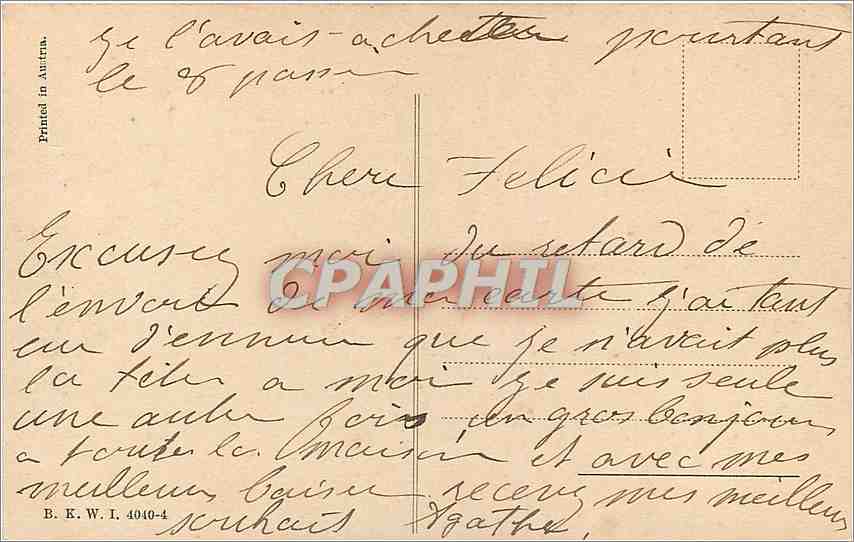 Printed in Austria.
ge l'avais achetter pourtant
le 8 passer
Chere Felicie
Excusez moi du retard de
l'envoie de ma carte j'ai tant
eu d'ennuie que je n'avait plus
la tête a moi je suis seule
une autre fois un gros bonjour
a toute la maison et avec mes
meilleurs baiser recevez mes meilleurs
souhait Agathe.
B. K. W. I. 4040-4
CPAPHIL